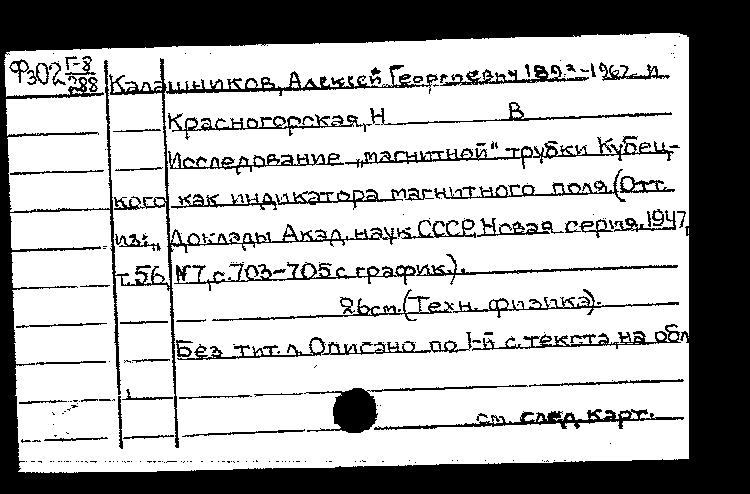 Фз02 Г-8/288
Калашников, Алексей Георгиевич 1893-1962 и
Красногорская, Н В
Исследование „магнитной" трубки Кубец-
кого как индикатора магнитного поля. (Отт.
из: „Доклады Акад. наук СССР, Новая серия, 1947,
т.56, №7, с.703-705 с график.).
26см. (Техн. физика).
Без тит. л. Описано по 1-й с. текста, на обл
см. след. карт.